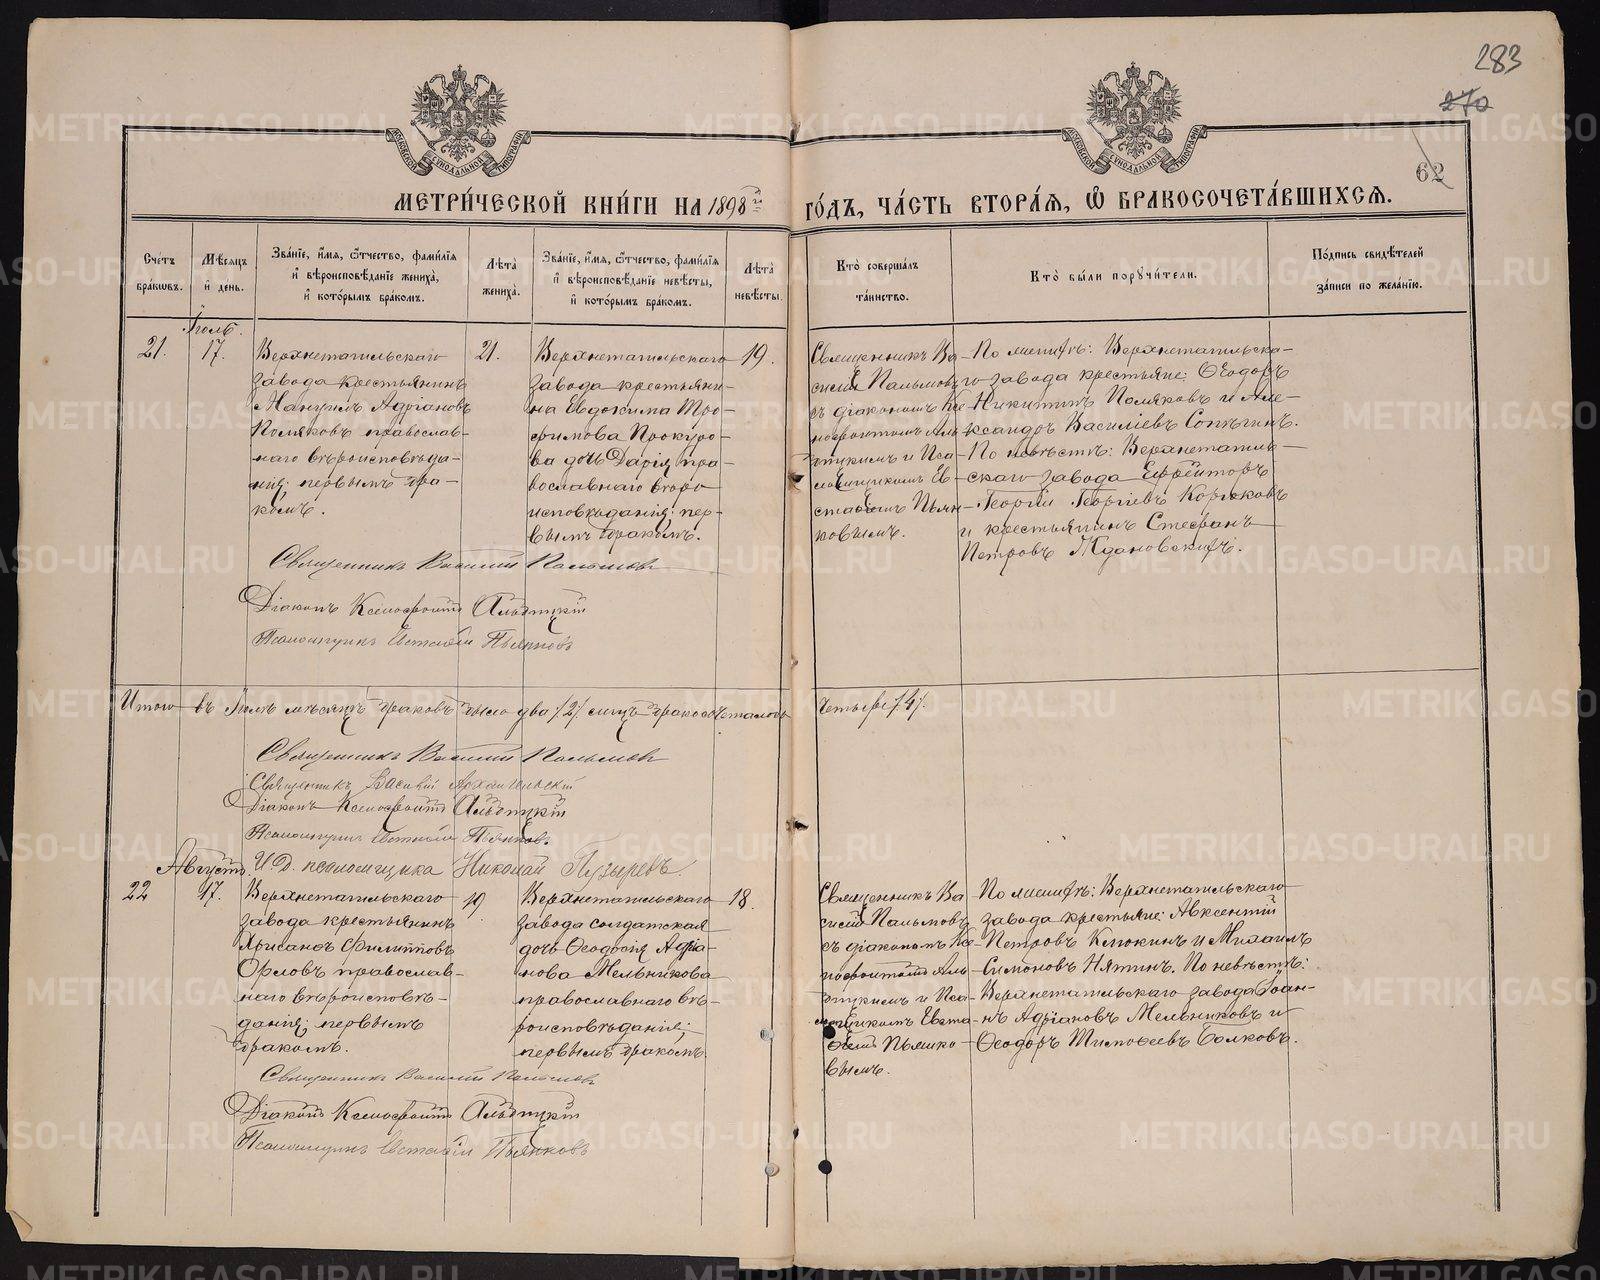 283
270
62
МОСКОВСКОЙ СѴНОДАЛЬНОЙ ТИПОГРАФІИ
МОСКОВСКОЙ СѴНОДАЛЬНОЙ ТИПОГРАФІИ
МЕТРИ́ЧЕСКОЙ КНИ́ГИ НА 1898й ГО́ДЪ, ЧА́СТЬ ВТОРА́Я, Ѡ БРАКОСОЧЕТА́ВШИХСЯ.
Счетъ бра́кѡвъ.
Мѣ́сяцъ и҆ день.
Зва́нїе, и҆́мя, ѻ҆́тчество, фами́лїя и҆ вѣроисповѣ́данїе жениха̀, и҆ кото́рымъ бра́комъ.
Лѣ́та жениха̀.
Зва́нїе, и҆́мя, ѻ҆́тчество, фами́лїя и҆ вѣроисповѣ́данїе невѣ́сты, и҆ кото́рымъ бра́комъ.
Лѣ́та невѣ́сты.
Кто̀ соверша́лъ та́инство.
Кто̀ бы́ли порꙋчи́тели.
По́дпись свидѣ́телей за́писи по жела́нїю.
Іюль.
21.
17.
Верхнетагильскаго
завода крестьянинъ
Мануилъ Адріановъ
Поляковъ православ-
наго вѣроисповѣда-
нія; первымъ бра-
комъ.
21.
Верхнетагильскаго
завода крестьяни-
на Евдокима Тро-
фимова Прокуро-
ва дочь Дарія пра-
вославнаго вѣро
исповѣданія; пер-
вымъ бракомъ.
19.
Священникъ Ва-
силій Пальмовъ
съ діакономъ Ксе-
нофонтомъ Аль-
птукимъ и Пса-
ломщикомъ Ев-
стафіемъ Пьян-
ковымъ.
По женихѣ: Верхнетагильска-
го завода крестьяне: Ѳеодоръ
Никитинъ Поляковъ и Але-
ксандръ Василіевъ Сопѣгинъ.
По невѣстѣ: Верхнетагиль-
скаго завода Ефрейторъ
Георгій Георгіевъ Коряковъ
и крестьянинъ Стефанъ
Петровъ Ждановскихъ.
Священникъ Василій Пальмовъ
Діаконъ Ксенофонтъ
Псаломщикъ Евстафій Пьянковъ
Итого въ Іюлѣ мѣсяцѣ браковъ было два /2/ лицъ бракосочеталось четыре /4/.
Священникъ Василій Пальмовъ
Священникъ Василій Архангельскій
Діаконъ Ксенофонтъ
Псаломщикъ Евстафій Пьянковъ.
И. Д. псаломщика Николай Пузыревъ.
Августъ.
22
17.
Верхнетагильскаго
завода крестьянинъ
Хрисанѳъ Филипповъ
Орловъ православ-
наго вѣроисповѣ-
данія; первымъ
бракомъ.
19
Верхнетагильскаго
завода солдатская
дочь Ѳеодосія Адріа-
нова Мельникова
православнаго вѣ-
роисповѣданія;
первымъ бракомъ.
18.
Священникъ Ва
силій Пальмовъ
съ діакономъ Ксе-
нофонтомъ Аль-
птукимъ и Пса-
ломщикомъ Евста-
фіемъ Пьянко-
вымъ.
По женихѣ: Верхнетагильскаго
завода крестьяне: Авксентій
Петровъ Клюкинъ и Михаилъ
Симоновъ Нятинъ. По невѣстѣ:
Верхнетагильскаго завода Іоан-
нъ Адріановъ Мельниковъ и
Ѳеодоръ Тимоѳеевъ Балковъ.
Священникъ Василій Пальмовъ
Діаконъ Ксенофонтъ
Псаломщикъ Евстафій Пьянковъ
METRIKI.GASO-URAL.RU